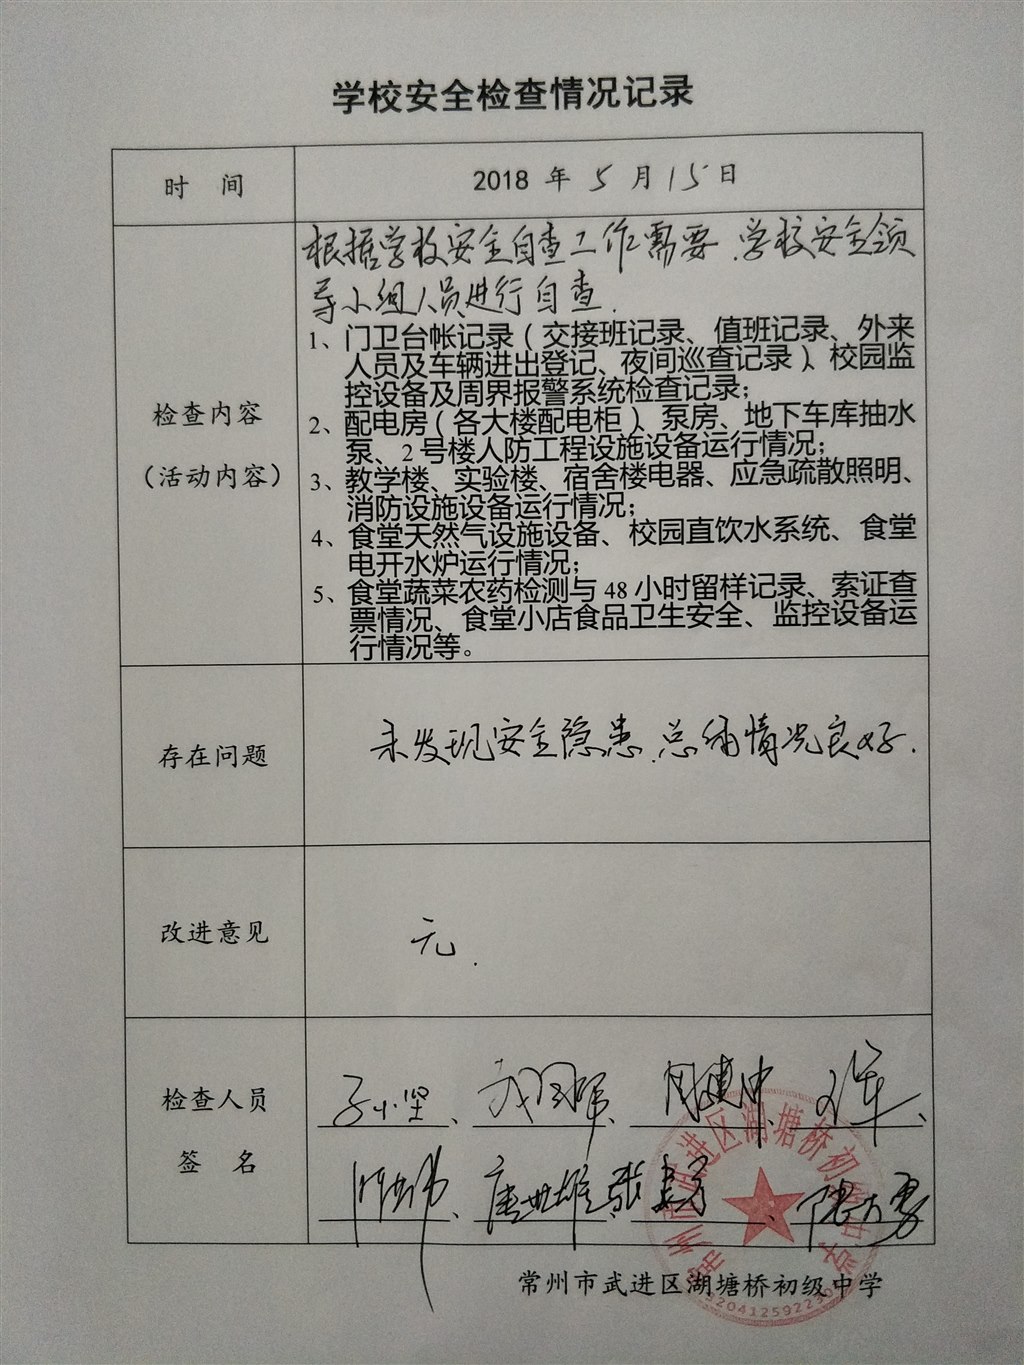 学校安全检查情况记录
时 间
2018 年 5 月 15 日
根据学校安全自查工作需要.学校安全领
导小组人员进行自查.
检查内容
（活动内容）
1、门卫台帐记录（交接班记录、值班记录、外来
人员及车辆进出登记、夜间巡查记录）、校园监
控设备及周界报警系统检查记录；
2、配电房（各大楼配电柜）、泵房、地下车库抽水
泵、2号楼人防工程设施设备运行情况；
3、教学楼、实验楼、宿舍楼电器、应急疏散照明、
消防设施设备运行情况；
4、食堂天然气设施设备、校园直饮水系统、食堂
电开水炉运行情况；
5、食堂蔬菜农药检测与 48 小时留样记录、索证查
票情况、食堂小店食品卫生安全、监控设备运
行情况等。
存在问题
未发现安全隐患.总体情况良好.
改进意见
无.
检查人员
签 名
唐世雄
常州市武进区湖塘桥初级中学
常州市武进区湖塘桥初级中学